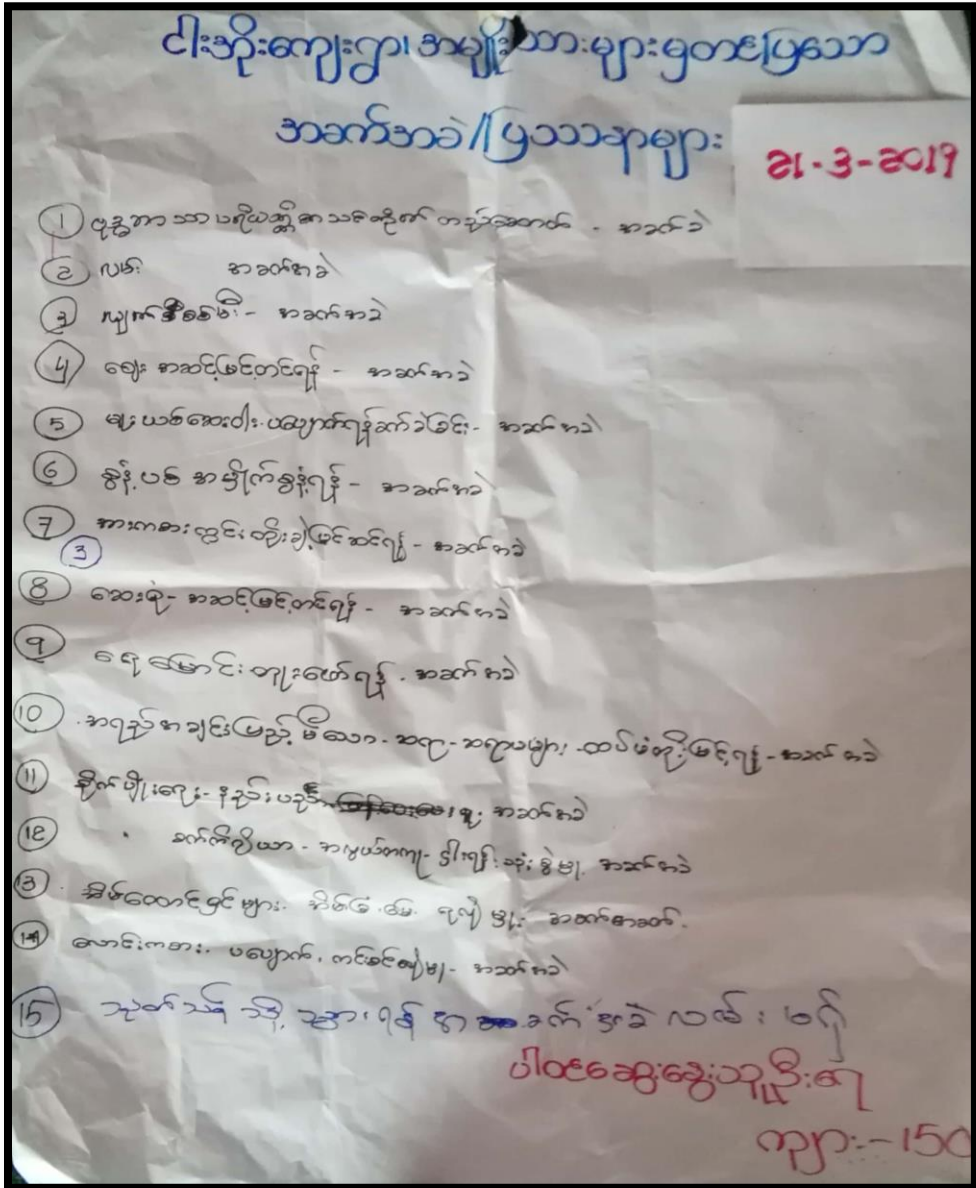 ငါးအိုးကျေးရွာ၊ အမျိုးသားများမှတင်ပြသော
အခက်အခဲ/ပြဿနာများ
21-3-2019
① ဗုဒ္ဓဘာသာ ပရိယတ္တိစာသင်တိုက် တည်ဆောက် - အခက်ခဲ
② လမ်း အခက်အခဲ
③ လျှပ်စစ်မီး - အခက်အခဲ
④ ဈေး အဆင့်မြှင့်တင်ရန် - အခက်အခဲ
⑤ မူးယစ်ဆေးဝါး ပပျောက်ရန်ခက်ခဲခြင်း - အခက်အခဲ
⑥ စွန့်ပစ် အမှိုက်စွန့်ရန် - အခက်အခဲ
⑦ အားကစားကွင်း တိုးချဲ့ပြင်ဆင်ရန် - အခက်အခဲ
③
⑧ ဆေးရုံ - အဆင့်မြှင့်တင်ရန် - အခက်အခဲ
⑨ ရေမြောင်းတူးဖော်ရန် - အခက်အခဲ
⑩ အရည်အချင်းပြည့်မီသော - ဆရာ - ဆရာမများ - ထပ်မံတိုးမြှင့်ရန် - အခက်အခဲ
⑪ စိုက်ပျိုးရေး - နည်းပညာ အခက်အခဲ
⑫ အခက်အခဲ
⑬ အိမ်ထောင်ရှင်များ အခက်အခက်
⑭ လောင်းကစား ပပျောက် - အခက်အခဲ
⑮ သုသာန် သို့ သွားရန် အခက်အခဲ လမ်းမရှိ
ပါဝင်ဆွေးနွေးသူဦးရေ
ကျား - 150